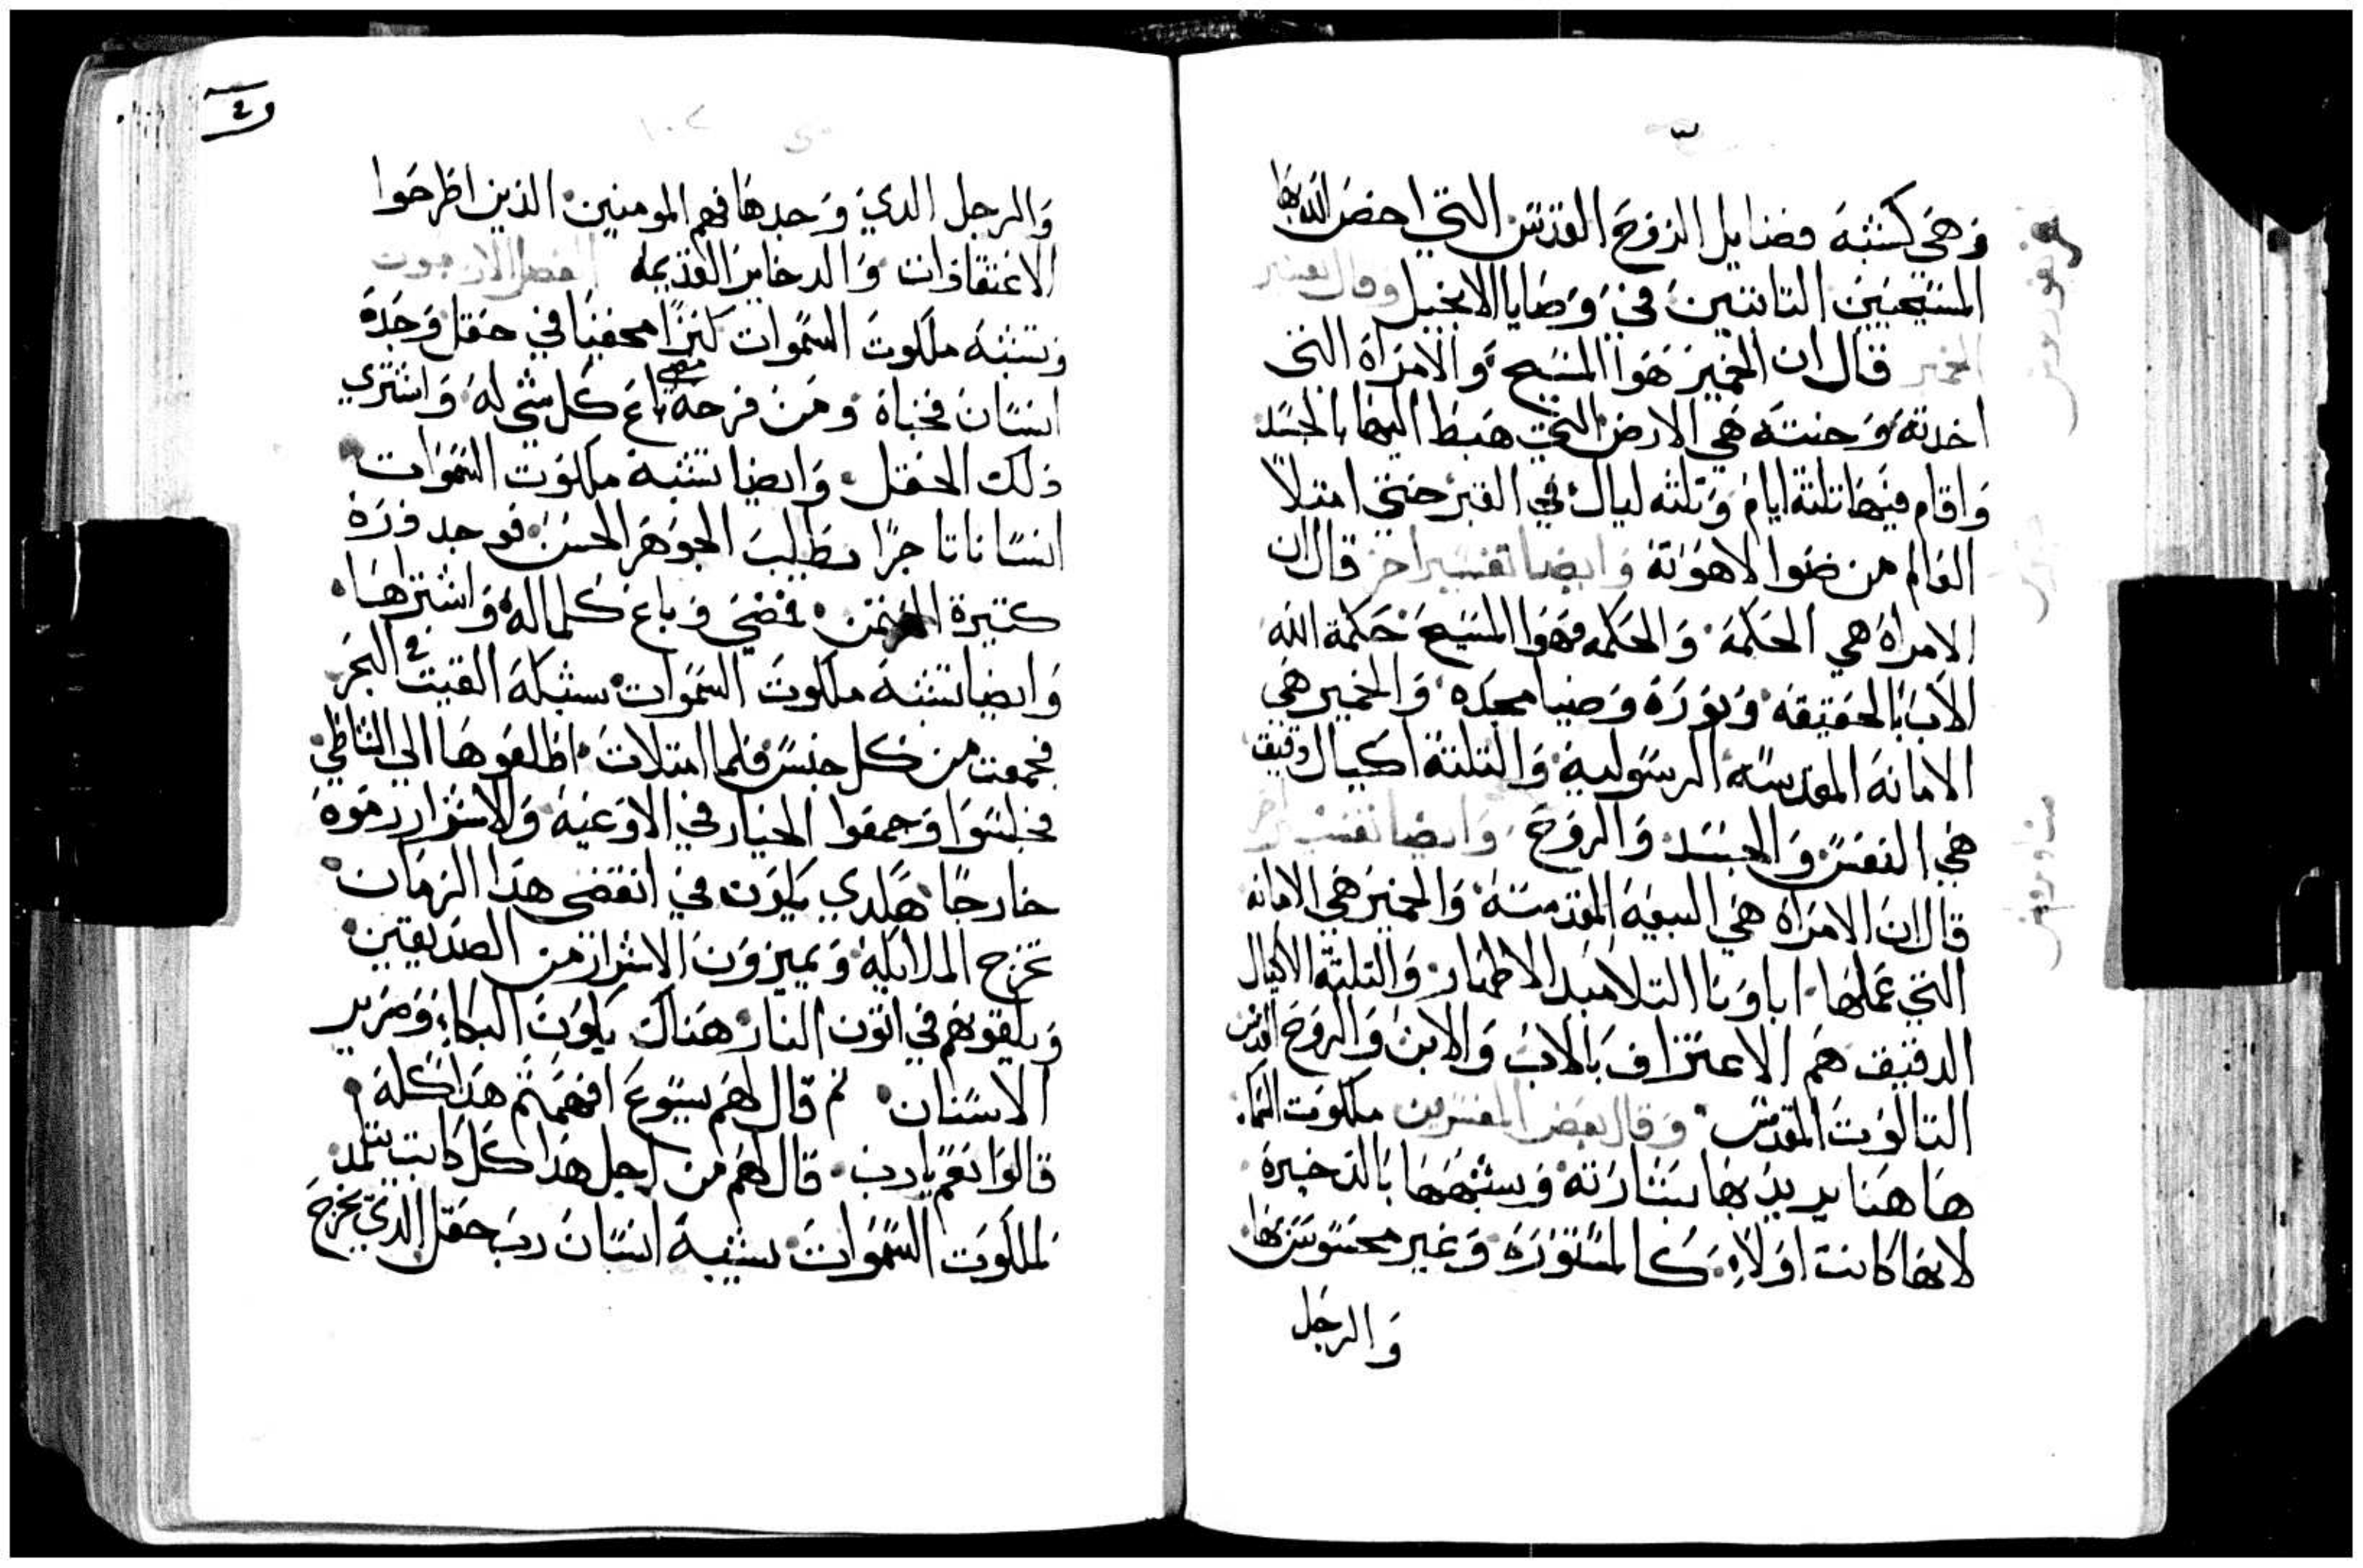 وهي كشبه فضايل الروح القدس التي احضر الله بها
المسيحيين التابتين في وصايا الانجيل وقال تفسير
الخمير قال ان الخمير هوا المسيح والامراة التي
اخدته وخبته هي الارض التي هبط اليها بالجسد
واقام فيها تلتة ايام وتلته ليال في القبر حتي امتلا
العالم من ضوا لاهوته وايضا تفسير اخر قال ان
الامراة هي الحكمة والحكمه فهوا المسيح حكمة الله
الاب بالحقيقه ونوره وضيا مجده والخمير هي
الامانه المقدسه الرسوليه والتلتة اكيال دقيق
هي النفس والجسد والروح وايضا تفسير اخر
قال ان الامراة هي البيعة المقدسة والخمير هي الامانه
التي عملها اباونا التلاميد الاطهار والتلتة الاكيال
الدقيق هم الاعتراف بالاب والابن والروح القدس
التالوت المقدس وقال بعض المفسرين ملكوت السما
هاهنا يريد بها بشارته وسبهها بالدخيرة
لانها كانت اولا كالمستورة وغير محسوس بها
والرجل
والرجل الدي وجدها فهم المومنين الذين اطرحوا
الاعتقادات والدخاير القديمه الفصل الاربعون
وتشبه ملكوت السموات كنزا مخفيا في حقل وجده
انسان فخباة ومن فرحه مضي باع كل شي له واشتري
ذلك الحقل وايضا تشبه ملكوت السموات
انسانا تاجرا يطلب الجوهر الحسن فوجد درة
كتيرة التمن فمضي وباع كلماله واشتراها
وايضا تشبه ملكوت السموات شبكة القيت في البحر
فجمعت من كل جنس فلما امتلات اطلعوها الي الشاطي
فجلسوا وجمعوا الخيار في الاوعية والاشرار رموه
خارجا هكدي يكون في انقضي هدا الزمان
تخرج الملايكة ويميزون الاشرار من الصديقين
ويلقوهم في اتون النار هناك يكون البكاء وصرير
الاسنان تم قال لهم يسوع افهمتم هدا كله
قالوا نعم يارب قال لهم من اجل هدا كل كاتب يتلمد
لملكوت السموات يشبه انسان رب حقل الدي يخرج